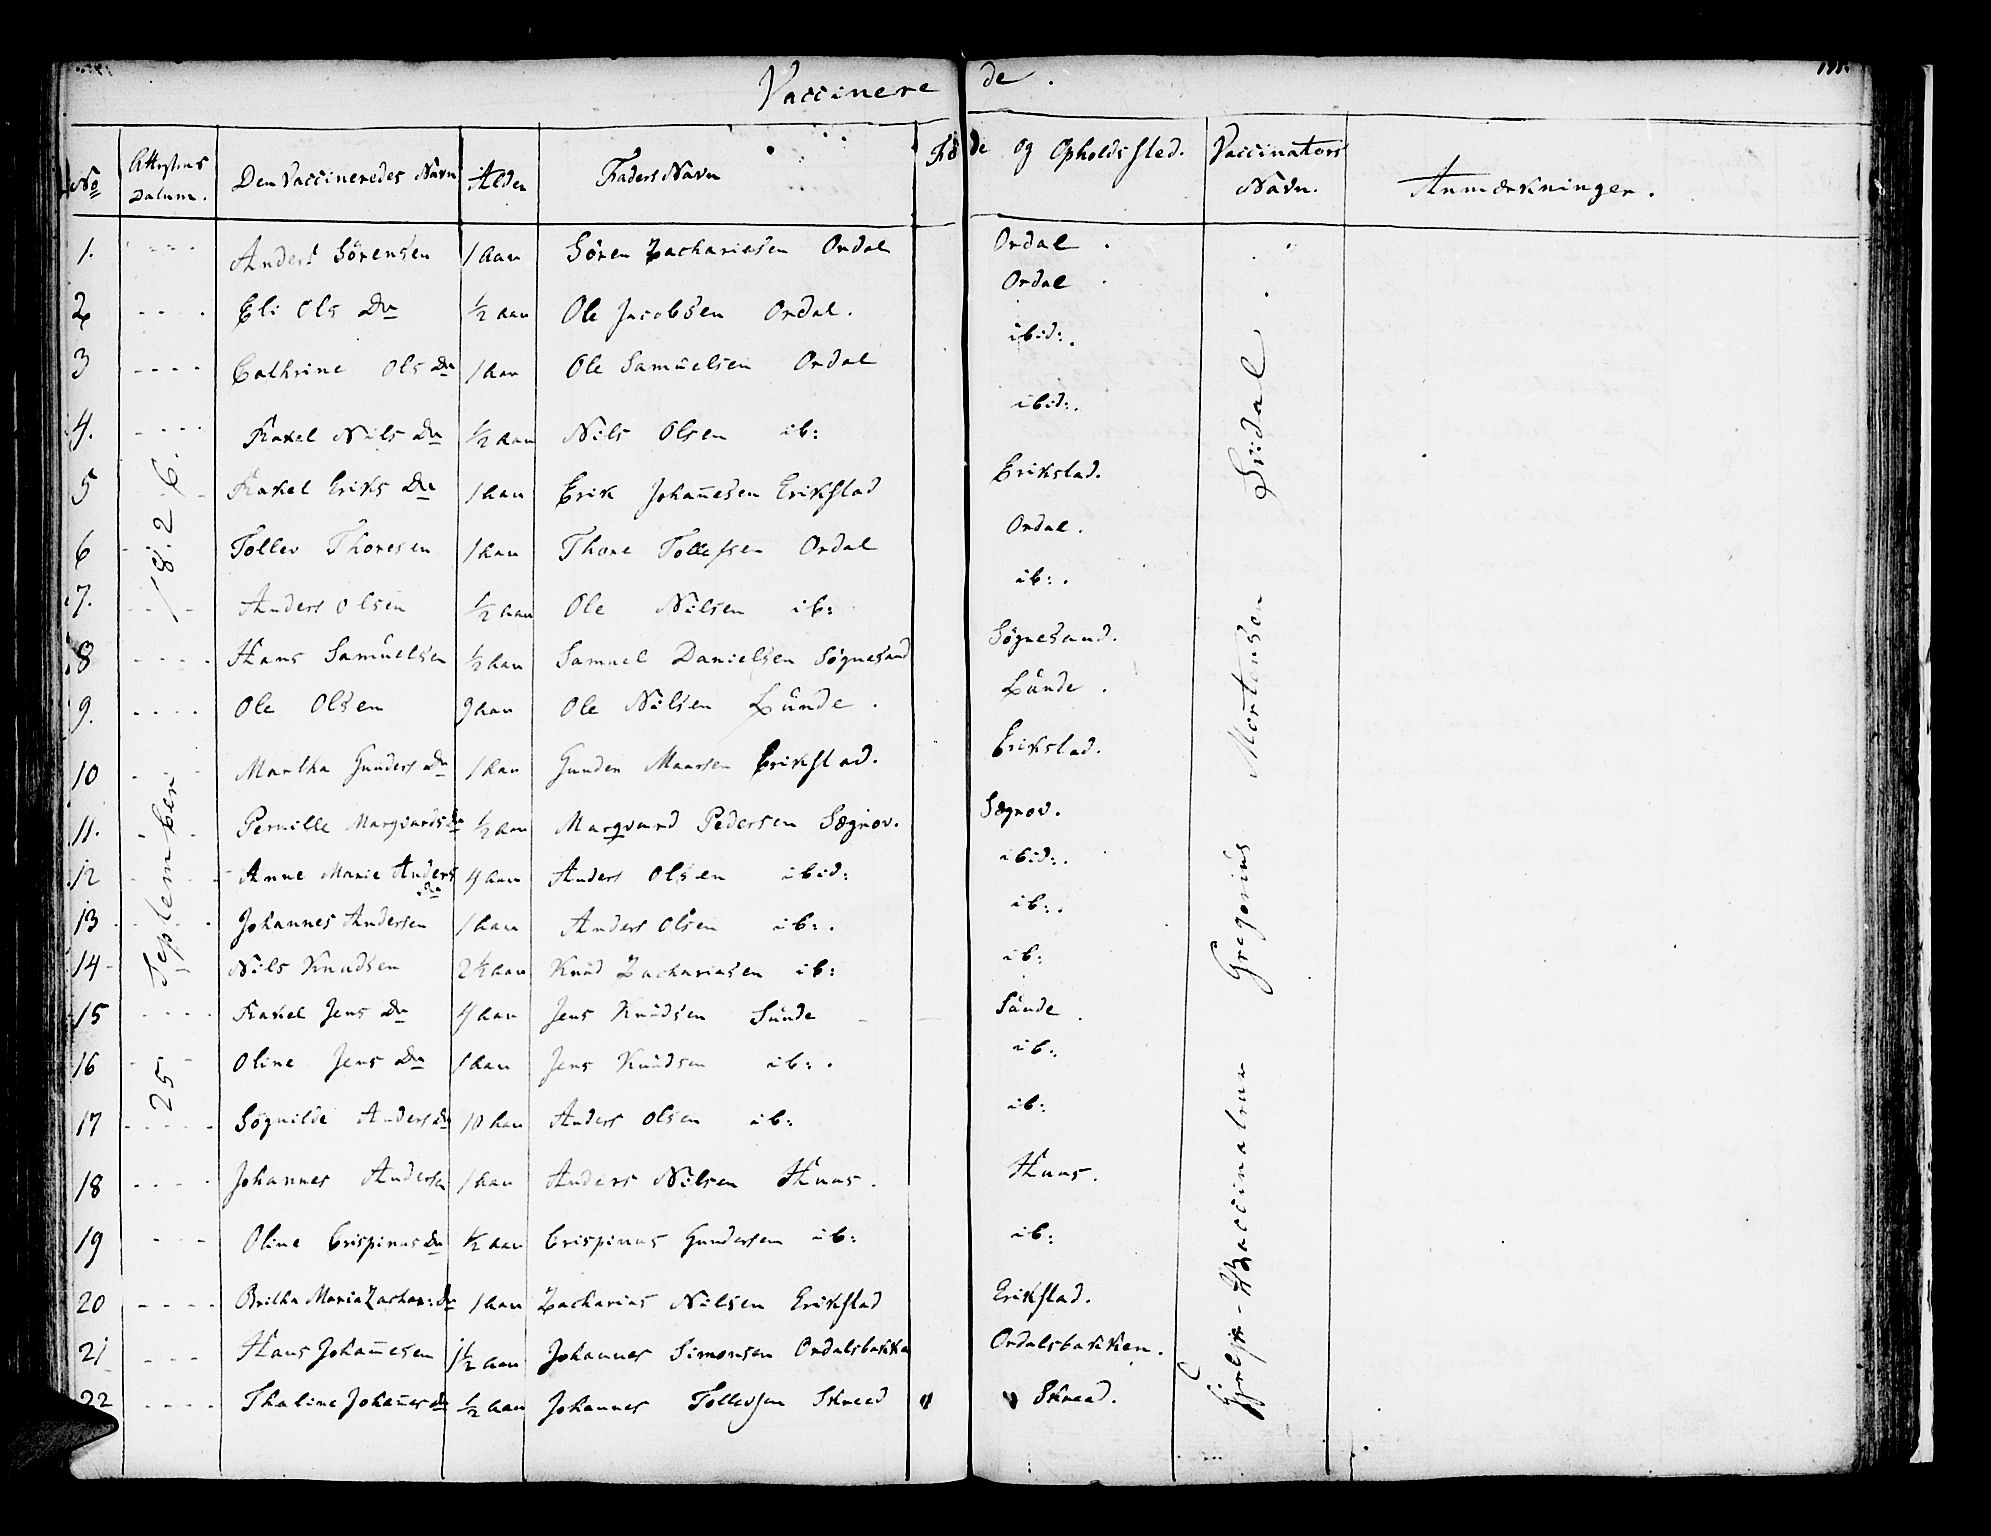 Vaccinerede.
No Attestens Datum. Den Vaccineredes Navn Alder Faders Navn Føde og Opholdssted. Vaccinators Navn. Anmærkninger.
1. Anders Sörensen 1 Aar Sören Zachariasen Ordal Ordal.
2 Eli Ols Dr ½ Aar Ole Jacobsen Ordal. Ordal.
3 Cathrine Ols Dr 1 Aar Ole Samuelsen Ordal ibid:.
4. Rakel Nils Dr ½ Aar Nils Olsen ib: ibid:.
5 Rakel Eriks Dr 1 Aar Erik Johannesen Erikstad Erikstad.
6 Tollev Thoresen 1 Aar Thore Tollefsen Ordal Ordal.
7. Anders Olsen ½ Aar Ole Nilsen ib: ib:.
8 Hans Samuelsen ½ Aar Samuel Danielsen Sögnesand Sögnesand.
9. Ole Olsen 9 Aar Ole Nilsen Lunde. Lunde.
10 Martha Gunders Dr 1 Aar Gunder Erikstad. Erikstad.
11. Pernille Dr ½ Aar Marqvard Pedersen Sægrov. Sægrov.
12 Anne Marie Anders Dr 4 Aar Anders Olsen ibid: ibid:.
13 Johannes Andersen 1 Aar Anders Olsen ib:. ib:.
14 Nils Knudsen 2½ Aar Knud Zachariasen ib: ib:
15 Rakel Jens Dr 4 Aar Jens Knudsen Sunde Sunde.
16 Oline Jens Dr 1 Aar Jens Knudsen ib:. ib:.
17 Sögnilde Anders Dr 10 Aar Anders Olsen ib: ib:
18 Johannes Andersen 1 Aar Anders Nilsen Huus. Huus.
19 Oline Crispinus Dr ½ Aar Crispinus Gundersen ib: ib:
20 Britha Maria Zachar: Dr 1 Aar Zacharias Nilsen Erikstad Erikstad.
21 Hans Johannesen 1½ Aar Johannes Simonsen Ordalsbakken Ordalsbakken.
22 Thaline Johannes Dr ½ Aar Johannes Tollevsen Skreed " " Skreed.
25 September 1826.
Hjelpe-Vaccinateur Gregorius Mortensen